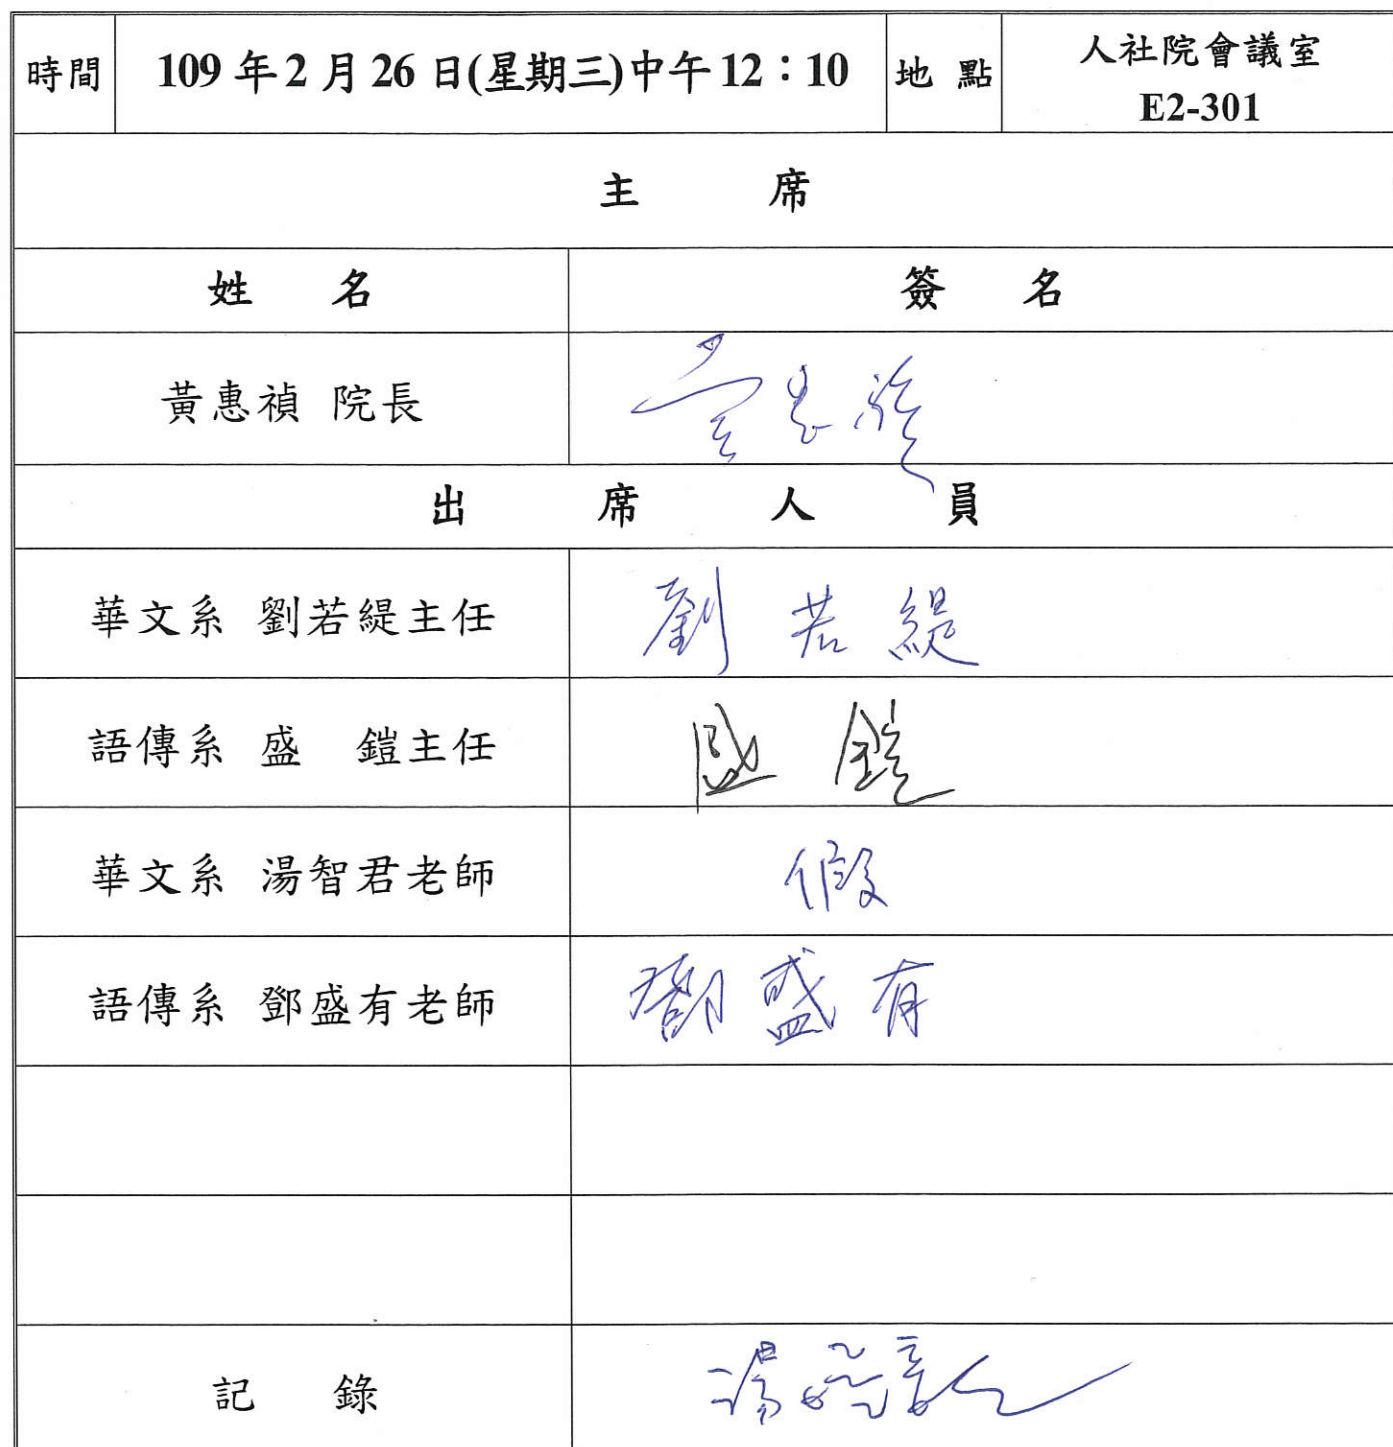 時間 109 年 2 月 26 日(星期三)中午 12：10 地 點 人社院會議室
E2-301
主 席
姓 名 簽 名
黃惠禎 院長
出 席 人 員
華文系 劉若緹主任 劉若緹
語傳系 盛 鎧主任 盛 鎧
華文系 湯智君老師 假
語傳系 鄧盛有老師 鄧盛有
記 錄